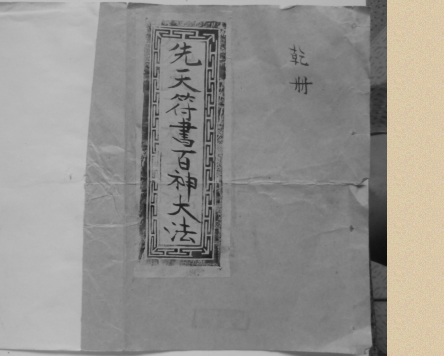 乾
册
先天符書百神大法